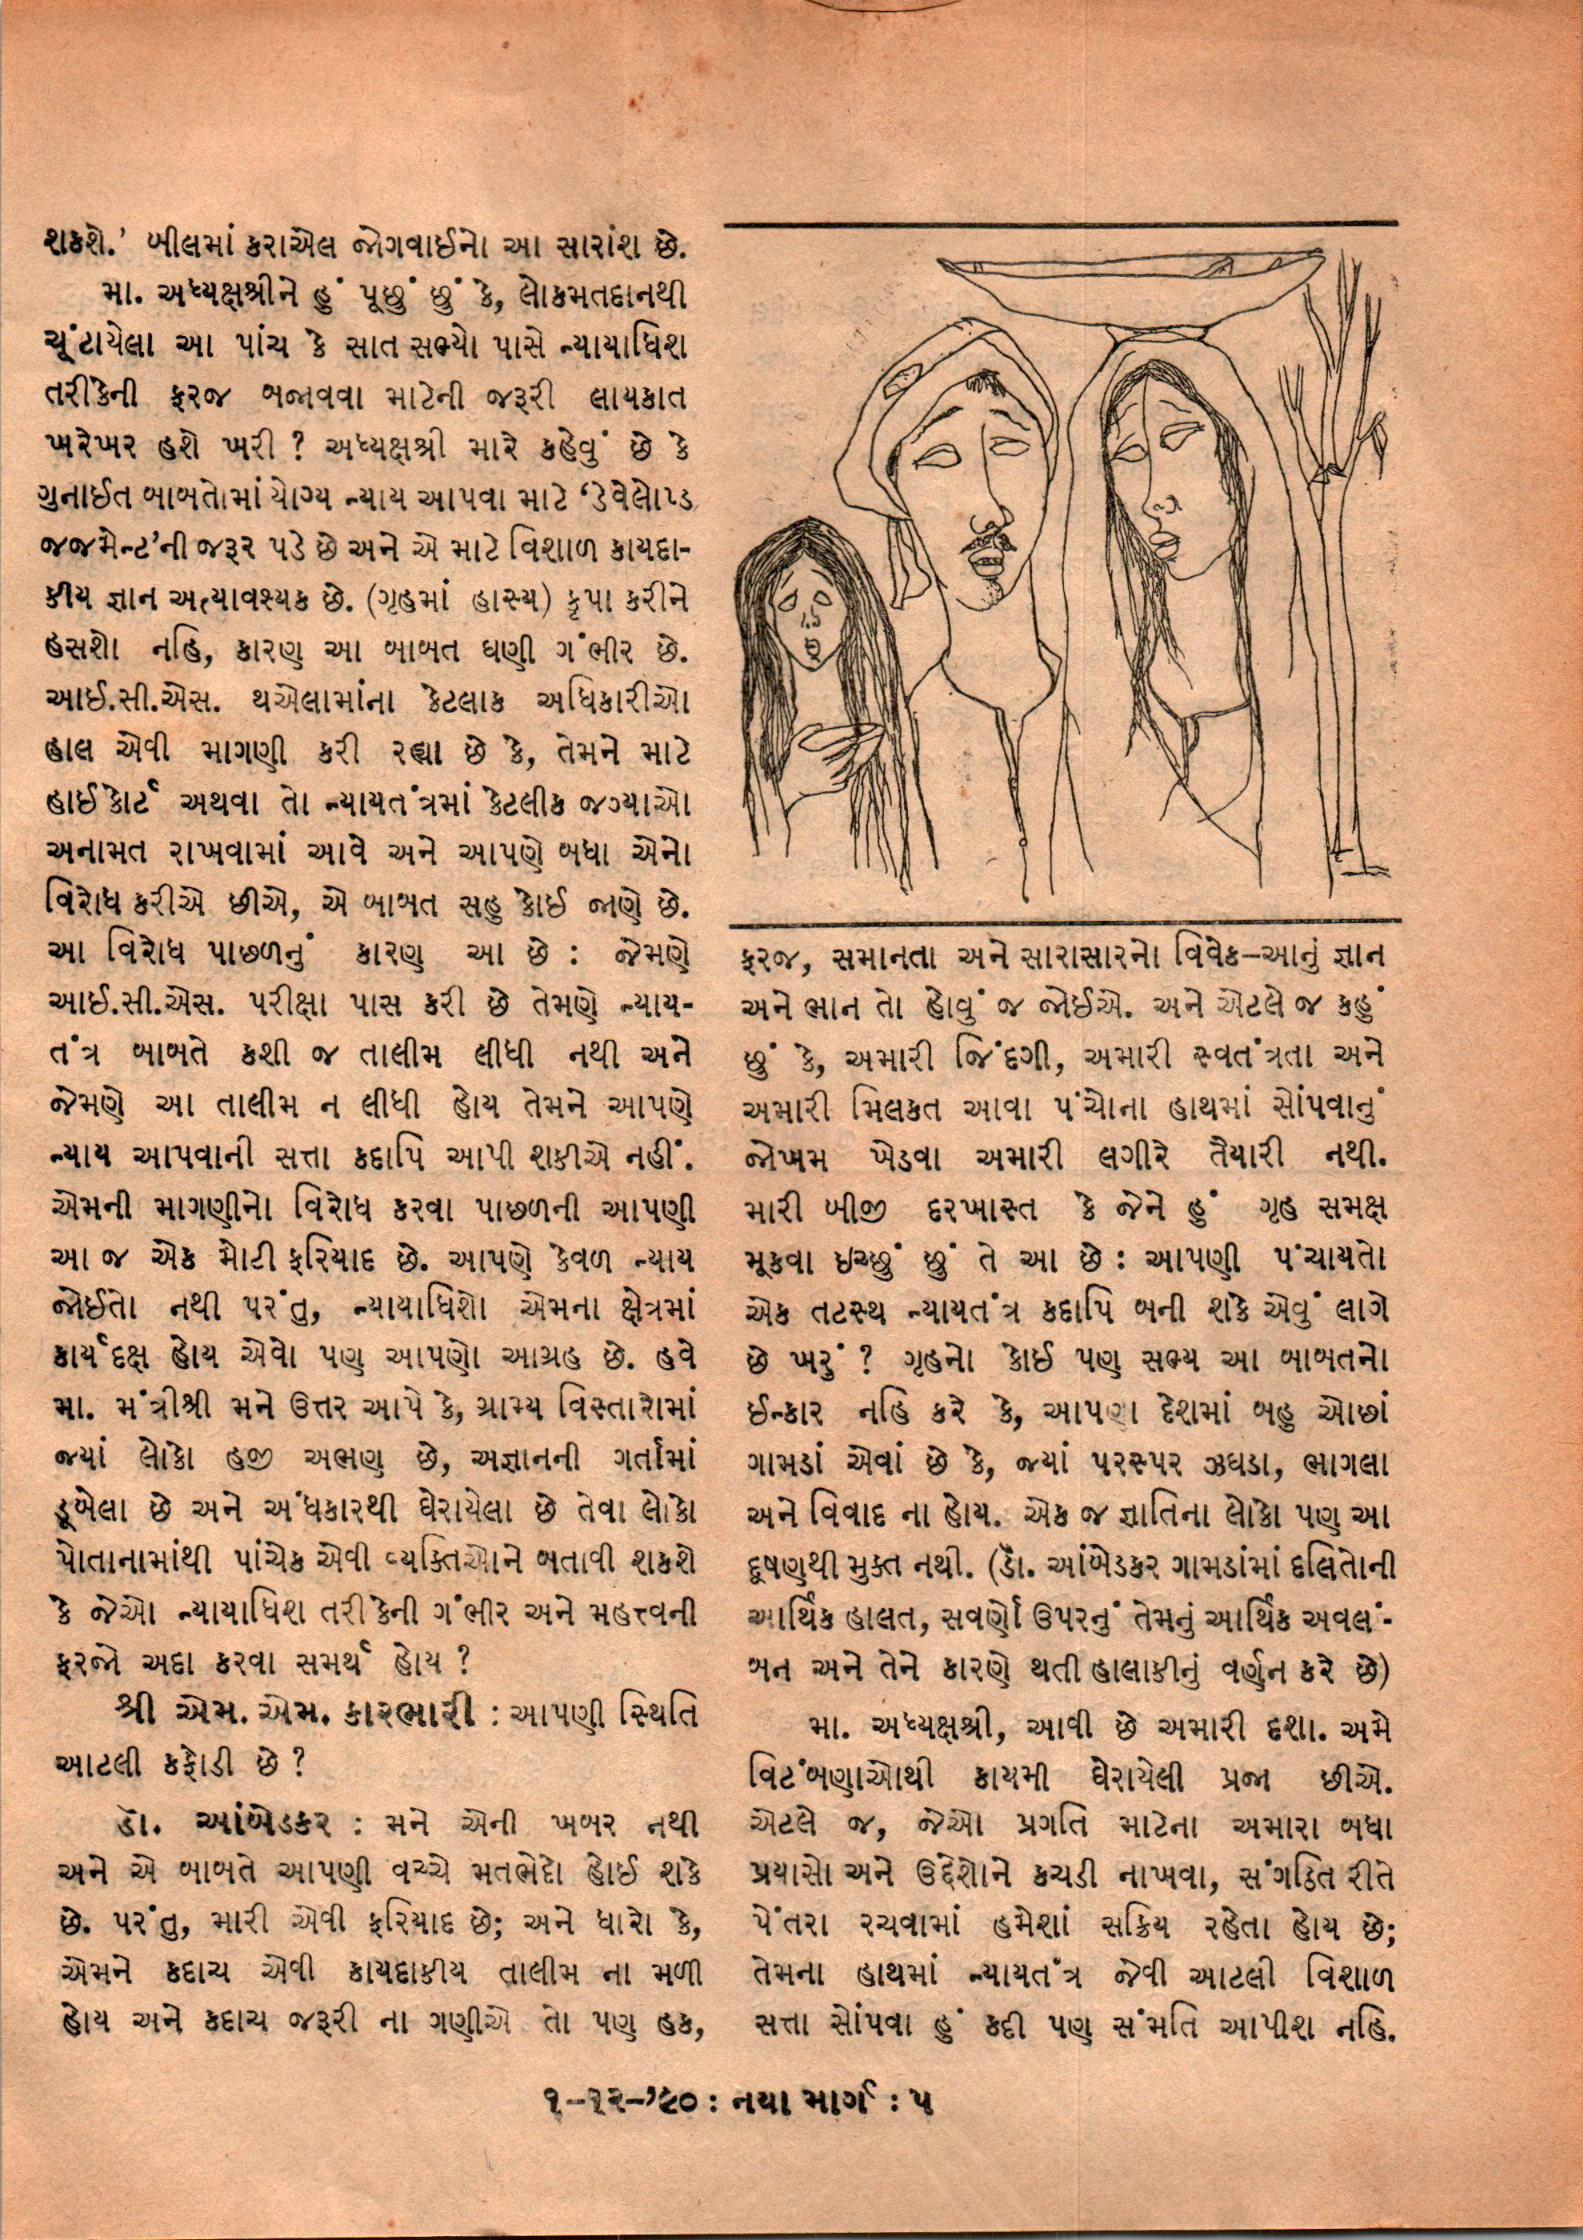 શકશે.' બીલમાં કરાએલ જોગવાઈનો આ સારાંશ છે.
મા. અધ્યક્ષશ્રીને હું પૂછું છું કે, લોકમતદાનથી
ચૂંટાયેલા આ પાંચ કે સાત સભ્યો પાસે ન્યાયાધિશ
તરીકેની ફરજ બજાવવા માટેની જરૂરી લાયકાત
ખરેખર હશે ખરી ? અધ્યક્ષશ્રી મારે કહેવું છે કે
ગુનાઈત બાબતોમાં યોગ્ય ન્યાય આપવા માટે ‘ડેવેલોપ્ડ
જજમેન્ટ’ની જરૂર પડે છે અને એ માટે વિશાળ કાયદા-
કીય જ્ઞાન અત્યાવશ્યક છે. (ગૃહમાં હાસ્ય) કૃપા કરીને
હસશો નહિ, કારણ આ બાબત ઘણી ગંભીર છે.
આઈ.સી.એસ. થએલામાંના કેટલાક અધિકારીઓ
હાલ એવી માગણી કરી રહ્યા છે કે, તેમને માટે
હાઈકોર્ટ અથવા તો ન્યાયતંત્રમાં કેટલીક જગ્યાઓ
અનામત રાખવામાં આવે અને આપણે બધા એનો
વિરોધ કરીએ છીએ, એ બાબત સહુ કોઈ જાણે છે.
આ વિરોધ પાછળનું કારણ આ છે : જેમણે
આઈ.સી.એસ. પરીક્ષા પાસ કરી છે તેમણે ન્યાય-
તંત્ર બાબતે કશી જ તાલીમ લીધી નથી અને
જેમણે આ તાલીમ ન લીધી હોય તેમને આપણે
ન્યાય આપવાની સત્તા કદાપિ આપી શકીએ નહીં.
એમની માગણીનો વિરોધ કરવા પાછળની આપણી
આ જ એક મોટી ફરિયાદ છે. આપણે કેવળ ન્યાય
જોઈતો નથી પરંતુ, ન્યાયાધિશો એમના ક્ષેત્રમાં
કાર્યદક્ષ હોય એવો પણ આપણો આગ્રહ છે. હવે
મા. મંત્રીશ્રી મને ઉત્તર આપે કે, ગ્રામ્ય વિસ્તારોમાં
જ્યાં લોકો હજી અભણ છે, અજ્ઞાનની ગર્તામાં
ડૂબેલા છે અને અંધકારથી ઘેરાયેલા છે તેવા લોકો
પોતાનામાંથી પાંચેક એવી વ્યક્તિઓને બતાવી શકશે
કે જેઓ ન્યાયાધિશ તરીકેની ગંભીર અને મહત્ત્વની
ફરજો અદા કરવા સમર્થ હોય ?
શ્રી એમ. એમ. કારભારી : આપણી સ્થિતિ
આટલી કફોડી છે ?
ડૉ. આંબેડકર : મને એની ખબર નથી
અને એ બાબતે આપણી વચ્ચે મતભેદો હોઈ શકે
છે. પરંતુ, મારી એવી ફરિયાદ છે; અને ધારો કે,
એમને કદાચ એવી કાયદાકીય તાલીમ ના મળી
હોય અને કદાચ જરૂરી ના ગણીએ તો પણ હક,
ફરજ, સમાનતા અને સારાસારનો વિવેક–આનું જ્ઞાન
અને ભાન તો હોવું જ જોઈએ. અને એટલે જ કહું
છું કે, અમારી જિંદગી, અમારી સ્વતંત્રતા અને
અમારી મિલકત આવા પંચોના હાથમાં સોંપવાનું
જોખમ ખેડવા અમારી લગીરે તૈયારી નથી.
મારી બીજી દરખાસ્ત કે જેને હું ગૃહ સમક્ષ
મૂકવા ઇચ્છું છું તે આ છે : આપણી પંચાયતો
એક તટસ્થ ન્યાયતંત્ર કદાપિ બની શકે એવું લાગે
છે ખરું ? ગૃહનો કોઈ પણ સભ્ય આ બાબતનો
ઈન્કાર નહિ કરે કે, આપણા દેશમાં બહુ ઓછાં
ગામડાં એવાં છે કે, જ્યાં પરસ્પર ઝઘડા, ભાગલા
અને વિવાદ ના હોય. એક જ જ્ઞાતિના લોકો પણ આ
દૂષણથી મુક્ત નથી. (ડૉ. આંબેડકર ગામડાંમાં દલિતોની
આર્થિક હાલત, સવર્ણો ઉપરનું તેમનું આર્થિક અવલં-
બન અને તેને કારણે થતી હાલાકીનું વર્ણન કરે છે)
મા. અધ્યક્ષશ્રી, આવી છે અમારી દશા. અમે
વિટંબણાઓથી કાયમી ઘેરાયેલી પ્રજા છીએ.
એટલે જ, જેઓ પ્રગતિ માટેના અમારા બધા
પ્રયાસો અને ઉદ્દેશોને કચડી નાખવા, સંગઠિત રીતે
પેંતરા રચવામાં હમેશાં સક્રિય રહેતા હોય છે;
તેમના હાથમાં ન્યાયતંત્ર જેવી આટલી વિશાળ
સત્તા સોંપવા હું કદી પણ સંમતિ આપીશ નહિ.
૧–૧૨–’૯૦ : નયા માર્ગ : ૫